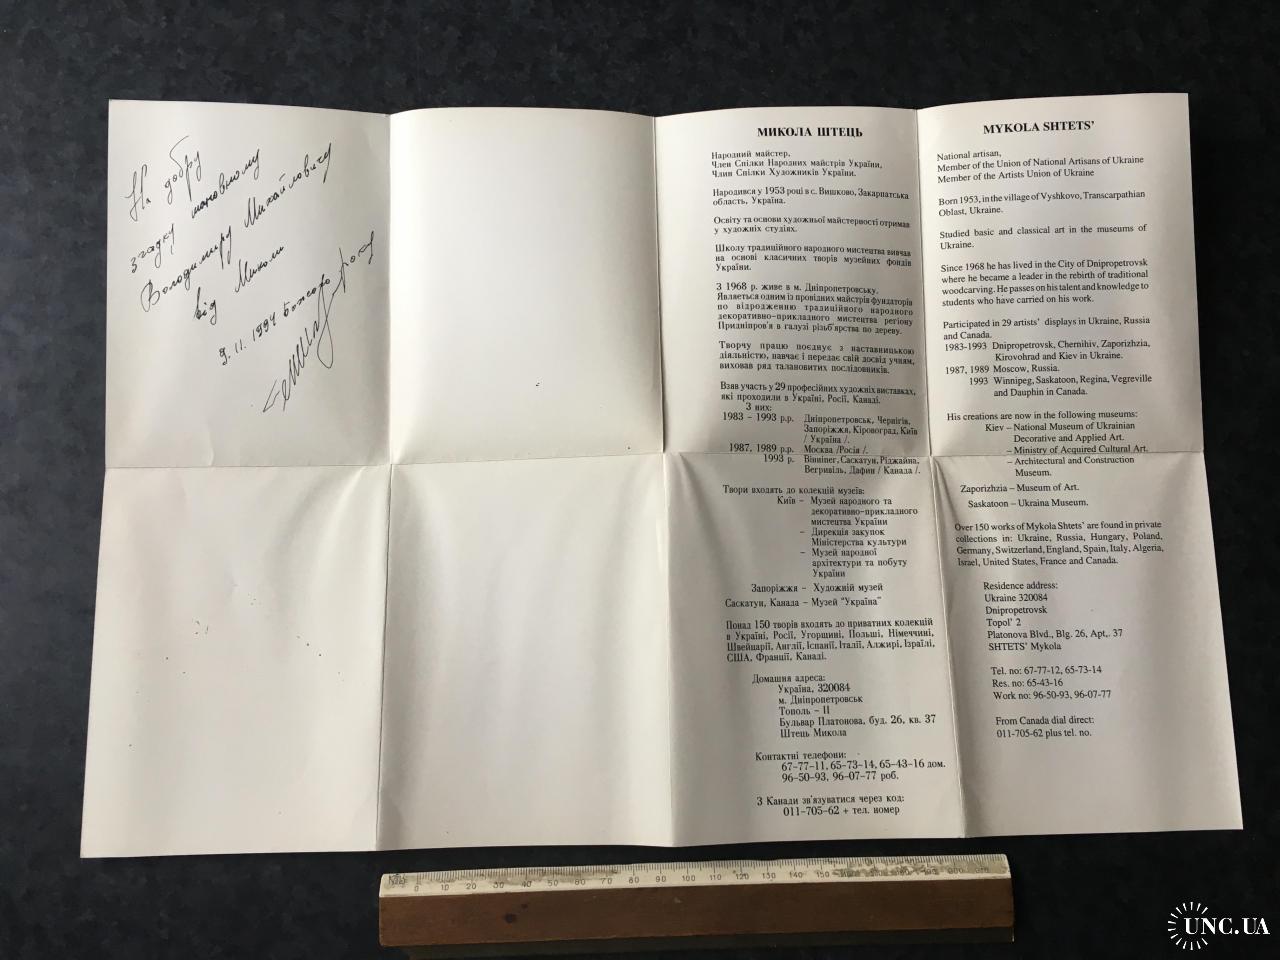 На добру
згадку шановному
Володимиру Михайловичу
від Миколи
9. 11. 1994 Божого року
МИКОЛА ШТЕЦЬ
Народний майстер,
Член Спілки Народних майстрів України,
Член Спілки Художників України.
Народився у 1953 році в с. Вишково, Закарпатська
область, Україна.
Освіту та основи художньої майстерності отримав
у художніх студіях.
Школу традиційного народного мистецтва вивчав
на основі класичних творів музейних фондів
України.
З 1968 р. живе в м. Дніпропетровську.
Являється одним із провідних майстрів фундаторів
по відродженню традиційного народного
декоративно-прикладного мистецтва регіону
Придніпров'я в галузі різьб'ярства по дереву.
Творчу працю поєднує з наставницькою
діяльністю, навчає і передає свій досвід учням,
виховав ряд талановитих послідовників.
Взяв участь у 29 професійних художніх виставках,
які проходили в Україні, Росії, Канаді.
З них:
1983 - 1993 р.р. Дніпропетровськ, Чернігів,
Запоріжжя, Кіровоград, Київ
/ Україна /.
1987, 1989 р.р. Москва /Росія /.
1993 р. Вінніпег, Саскатун, Ріджайна,
Вегривіль, Дафин / Канада /.
Твори входять до колекцій музеїв:
Київ – Музей народного та
декоративно-прикладного
мистецтва України
– Дирекція закупок
Міністерства культури
– Музей народної
архітектури та побуту
України
Запоріжжя – Художній музей
Саскатун, Канада – Музей "Україна"
Понад 150 творів входять до приватних колекцій
в Україні, Росії, Угорщині, Польщі, Німеччині,
Швейцарії, Англії, Іспанії, Італії, Алжирі, Ізраїлі,
США, Франції, Канаді.
Домашня адреса:
Україна, 320084
м. Дніпропетровськ
Тополь – II
Бульвар Платонова, буд. 26, кв. 37
Штець Микола
Контактні телефони:
67-77-11, 65-73-14, 65-43-16 дом.
96-50-93, 96-07-77 роб.
З Канади зв'язуватися через код:
011-705-62 + тел. номер
MYKOLA SHTETS'
National artisan,
Member of the Union of National Artisans of Ukraine
Member of the Artists Union of Ukraine
Born 1953, in the village of Vyshkovo, Transcarpathian
Oblast, Ukraine.
Studied basic and classical art in the museums of
Ukraine.
Since 1968 he has lived in the City of Dnipropetrovsk
where he became a leader in the rebirth of traditional
woodcarving. He passes on his talent and knowledge to
students who have carried on his work.
Participated in 29 artists' displays in Ukraine, Russia
and Canada.
1983-1993 Dnipropetrovsk, Chernihiv, Zaporizhzia,
Kirovohrad and Kiev in Ukraine.
1987, 1989 Moscow, Russia.
1993 Winnipeg, Saskatoon, Regina, Vegreville
and Dauphin in Canada.
His creations are now in the following museums:
Kiev – National Museum of Ukrainian
Decorative and Applied Art.
– Ministry of Acquired Cultural Art.
– Architectural and Construction
Museum.
Zaporizhzia – Museum of Art.
Saskatoon – Ukraina Museum.
Over 150 works of Mykola Shtets' are found in private
collections in: Ukraine, Russia, Hungary, Poland,
Germany, Switzerland, England, Spain, Italy, Algeria,
Israel, United States, France and Canada.
Residence address:
Ukraine 320084
Dnipropetrovsk
Topol' 2
Platonova Blvd., Blg. 26, Apt,. 37
SHTETS' Mykola
Tel. no: 67-77-12, 65-73-14
Res. no: 65-43-16
Work no: 96-50-93, 96-07-77
From Canada dial direct:
011-705-62 plus tel. no.
0 10 20 30 40 50 60 70 80 90 100 110 120 130 140 150
UNC.UA